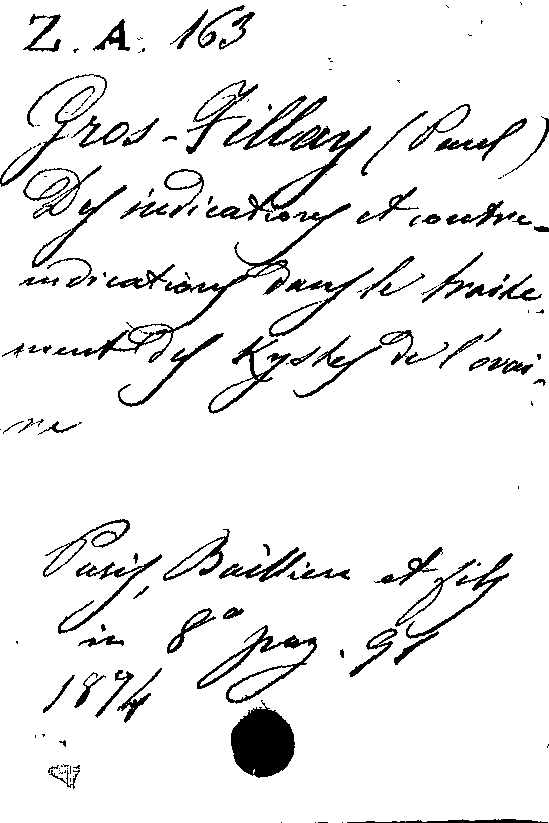 Z. A. 163
Gros-Fillay (Paul)
Des indications et contre-
indications dans le traite-
ment des Kystes de l'ovai-
re
Paris, Baillière et fils
in 8° pag. 97
1874